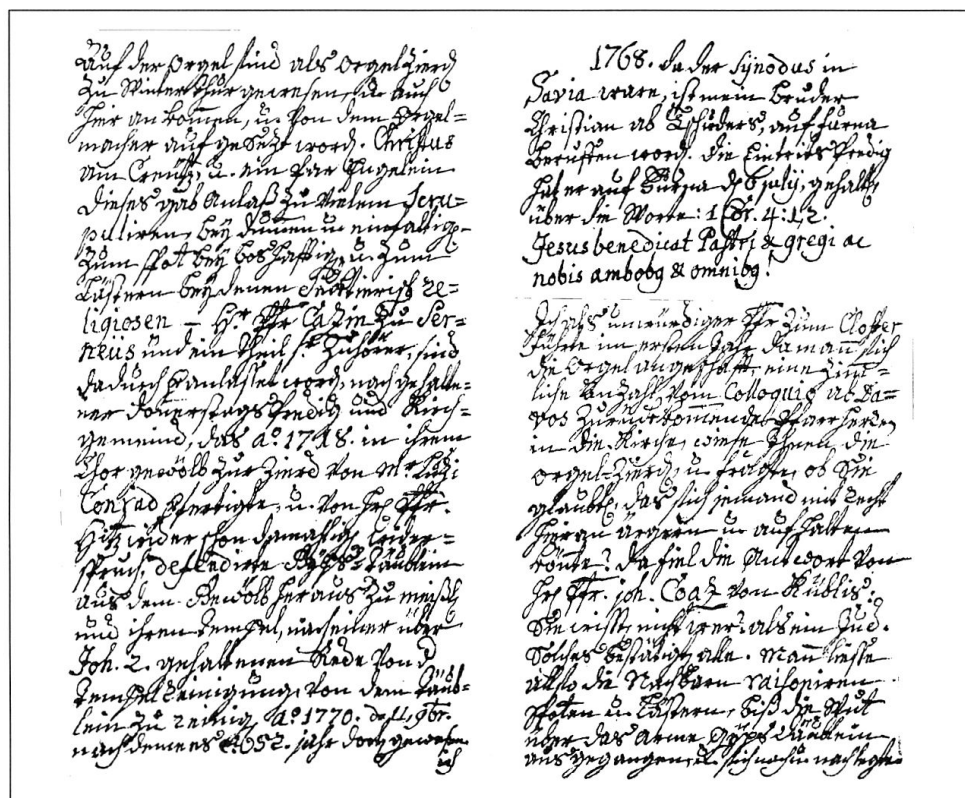 Auf der Orgel sind als Orgel Zierd
zu Winterthur gewesen, u. auch
hier an kommen, u. von dem Orgel=
macher auf gesetzt word. Christus
am Creutz, u. ein par Engelein
Dieses gab Anlaß zu vielem Scru=
puliren, bey dumen u. einfältig.
zum Spot bey boshafftig, u. zum
Lästern bey denen Sectierisch re=
ligiosen — Hr. Pfr Catzin zu Ser=
neüs und ein theil sr. Zuhörer, sind
dadurch veranlasset word, nach gehalte=
ner donerstags Predig und Kirch=
gemeind, das ao. 1718. in ihrem
Chor gewölb zur Zierd von Mr.
Conrad verfertigte, u. von Hr. Pfr.
Hitz wider schon damahlig wider=
spruch, defendirte Gyps=täublein
aus dem Gewölb heraus zu meißlen
und ihren Tempel, nach einer über
Joh. 2. gehaltenen Rede von d
Tempel Reinigung, von dem Täub=
lein zu reinig. Ao. 1770. d. 11. 9br.
nach demm es 52. jahr dort gewesen
1768. da der Synodus in
Savia ware, ist mein Bruder
Christian ab Tschiders, auf furna
beruffen word. die Eintrits Predig
hat er auf furna d. 6 Julij, gehalt,
über die Worte: 1 Cor. 4: 1, 2.
Jesus benedicat Pastori & gregi ac
nobis ambobg & omnibg!
Ich als unwürdiger Pfr zum Closter
führte im ersten Jahr da man sich
die Orgel angeschafft, eine zim=
liche Anzahl, vom Colloquio ab Da=
vos zurückkommende Pfarrherren
in die Kirche, wiese Ihnen die
Orgel=Zierd, u. fragte, ob Sie
glaubte, das sich jemand mit recht
hieran ärgern u. aufhalten
könte? Da fiel die Antwort von
Hr. Pfr. Joh. Coaz von Küblis:
Sie wisse nicht wer? als ein Jud.
Solches bestätigt alle. Mann liesse
also die Nachbarn raisoniren
Spoten u. Lästern, biß die Wut
über das arme Gyps Däublein
ausgegangen, u. sich nach u. nach legte.